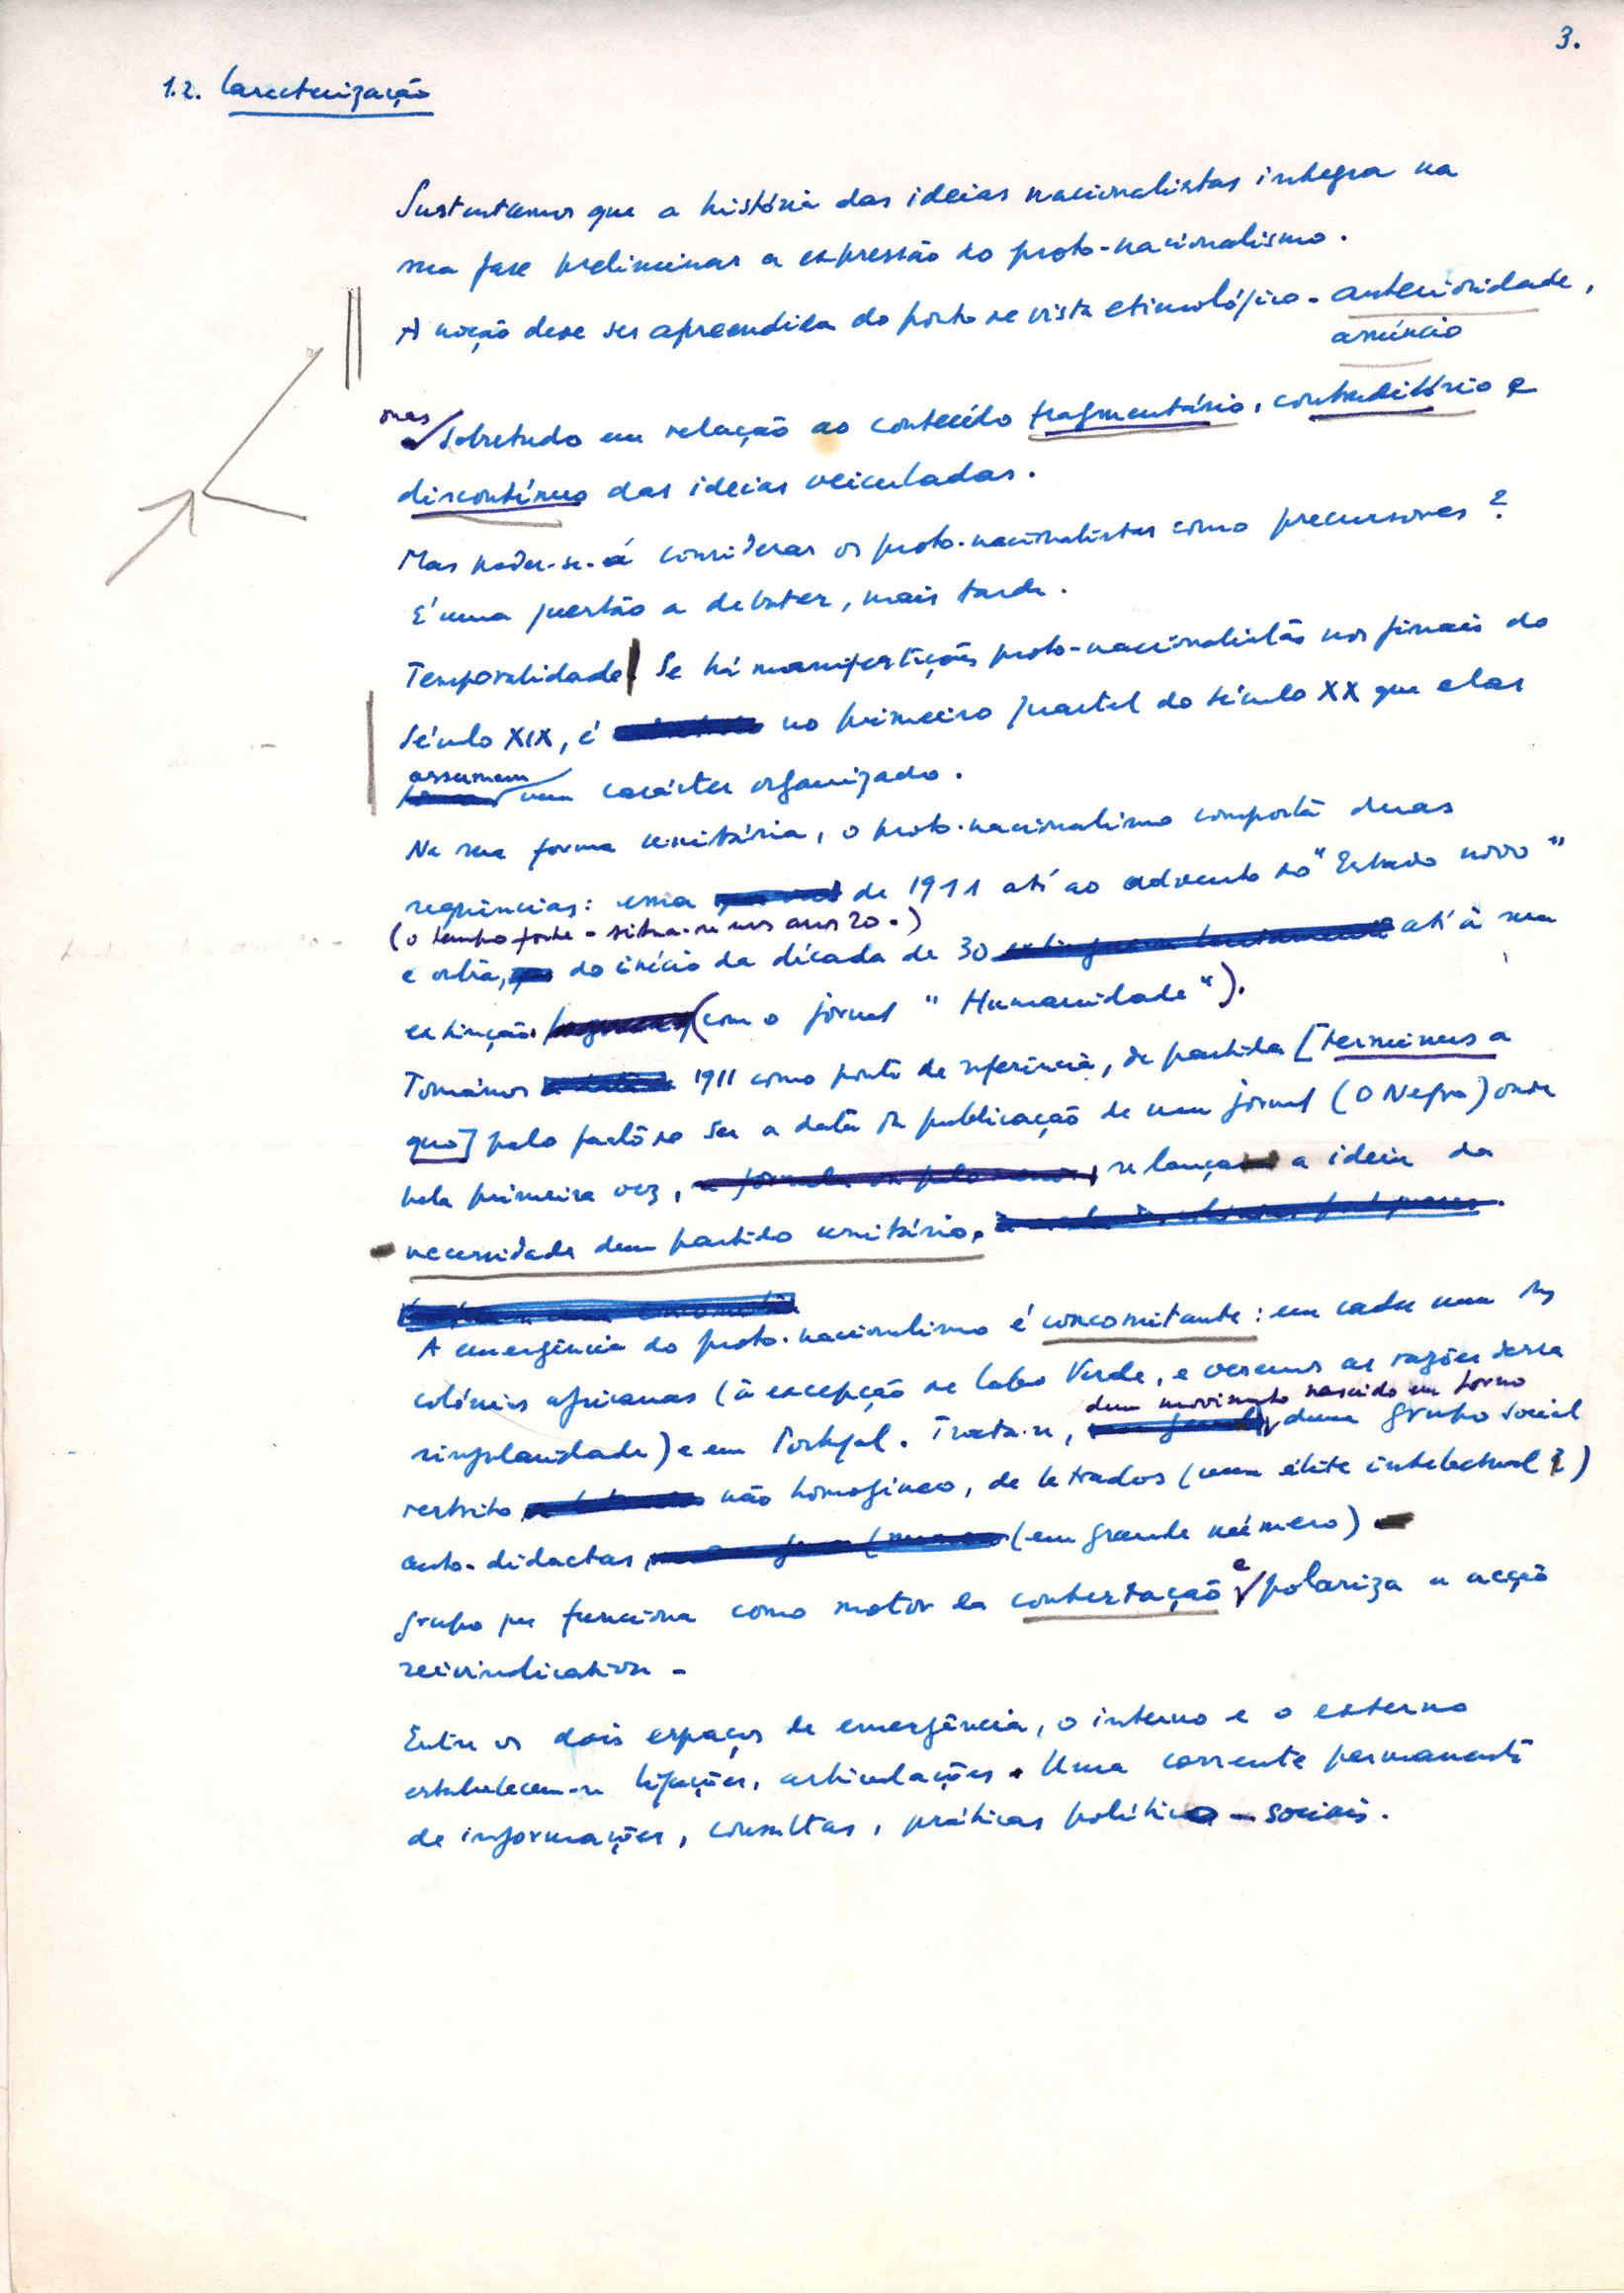 3.
1.2. Caracterização
Sustentamos que a história das ideias nacionalistas integra na
sua fase preliminar a expressão do proto-nacionalismo.
A noção deve ser apreendida do ponto de vista etimológico - anterioridade,
anúncio
mas
sobretudo em relação ao conteúdo fragmentário, contraditório e
discontínuo das ideias veiculadas.
Mas poder-se-á considerar os proto-nacionalistas como precursores?
É uma questão a debater, mais tarde.
Temporalidade. Se há manifestações proto-nacionalistas nos finais do
século XIX, é no primeiro quartel do século XX que elas
assumem
um carácter organizado.
Na sua forma unitária, o proto-nacionalismo comporta duas
sequências: uma de 1911 até ao advento do "Estado novo"
(o tempo forte - situa-se nos anos 20-)
e outra, do início da década de 30 até à sua
extinção (com o jornal "Humanidade").
Tomámos 1911 como ponto de referência, de partida [terminus a
quo] pelo facto de ser a data da publicação de um jornal (O Negro) onde
pela primeira vez, se lança a ideia da
necessidade dum partido unitário.
A emergência do proto-nacionalismo é concomitante: em cada uma das
colónias africanas (à excepção de Cabo Verde, e veremos as razões dessa
dum movimento nascido em torno
singularidade) e em Portugal. Trata-se, dum grupo social
restrito não homogéneo, de letrados (uma élite intelectual?)
auto-didactas, (em grande número)
grupo que funciona como motor da contestação
e
polariza a acção
reivindicativa -
Entre os dois espaços de emergência, o interno e o externo
estabelecem-se ligações, articulações. Uma corrente permanente
de informações, consultas, práticas político-sociais.